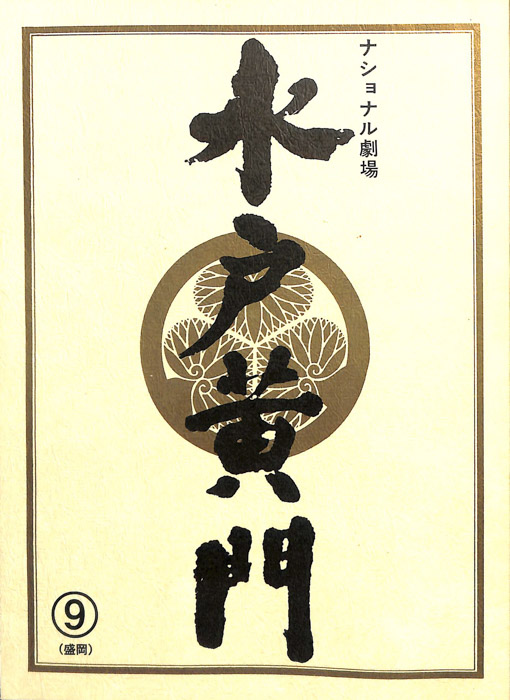 ナショナル劇場
水戸黄門
⑨
(盛岡)